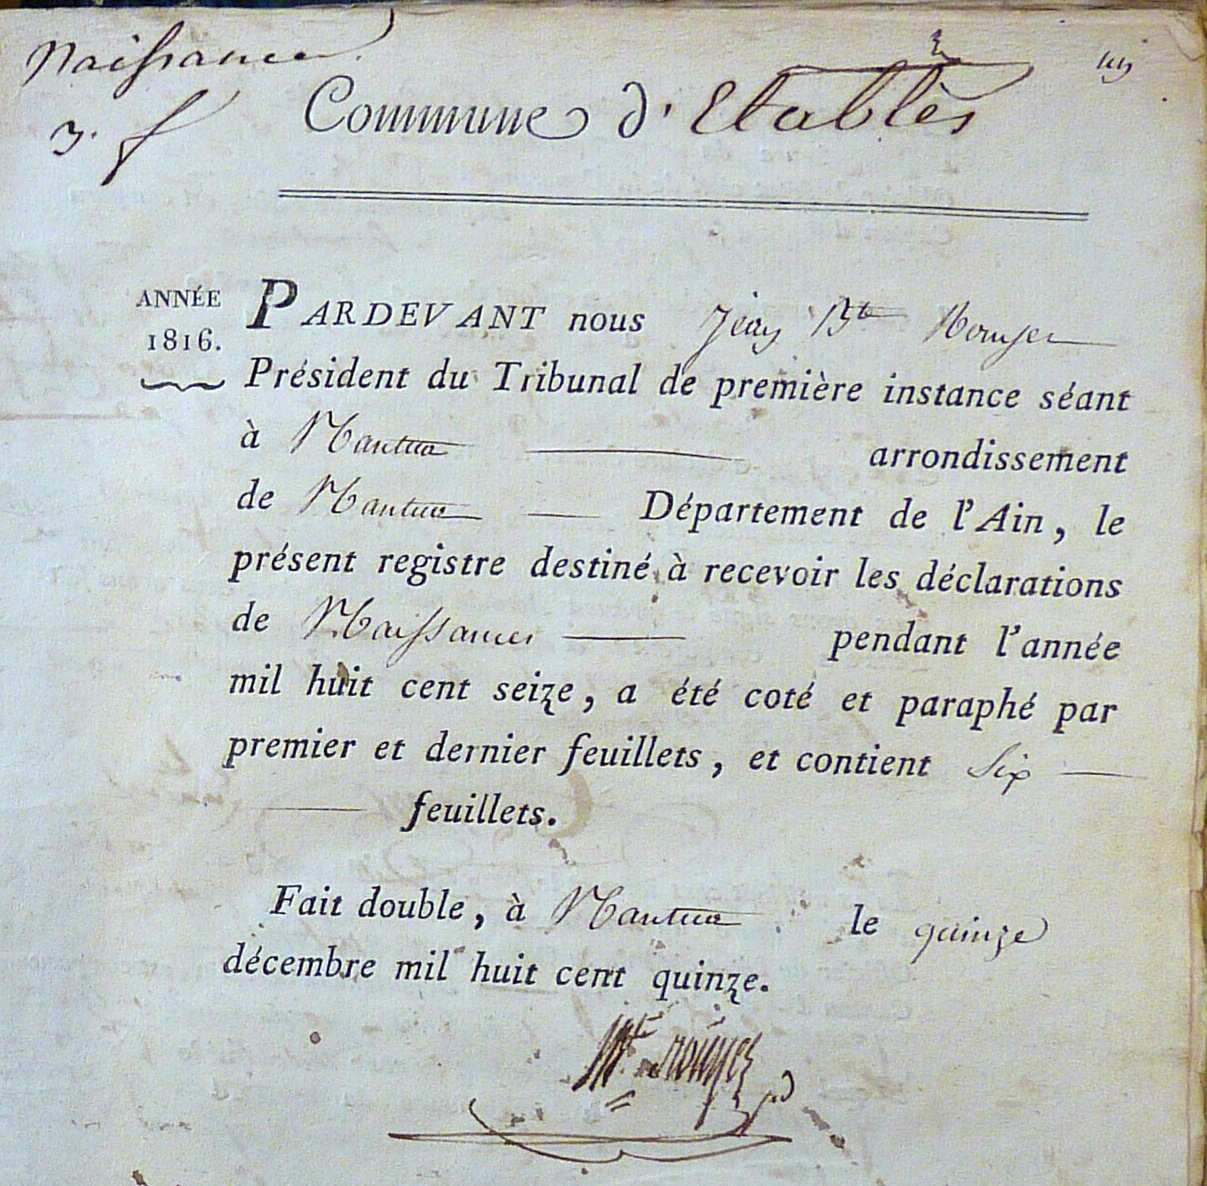 Naissance
Commune d'Etables
3. f
ANNÉE
1816.
PARDEVANT nous Jean Bte Rouyer
Président du Tribunal de première instance séant
à Nantua arrondissement
de Nantua Département de l'Ain, le
présent registre destiné à recevoir les déclarations
de Naissances pendant l'année
mil huit cent seize, a été coté et paraphé par
premier et dernier feuillets, et contient Six
feuillets.
Fait double, à Nantua le quinze
décembre mil huit cent quinze.